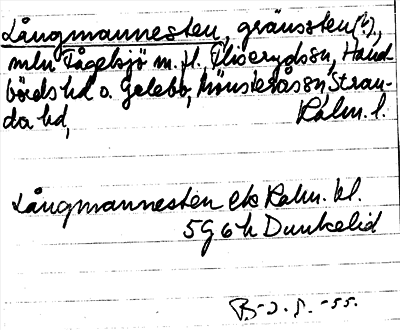 Långmannesten, gränssten(?),
mln Fågelsjö m.fl. Fliseryds sn, Hand-
börds hd o. Gelebo, Mönsterås sn, Stran-
da hd, Kalm. l.
Långmannesten ek Kalm. bl.
5 G 6 h Dunkelid